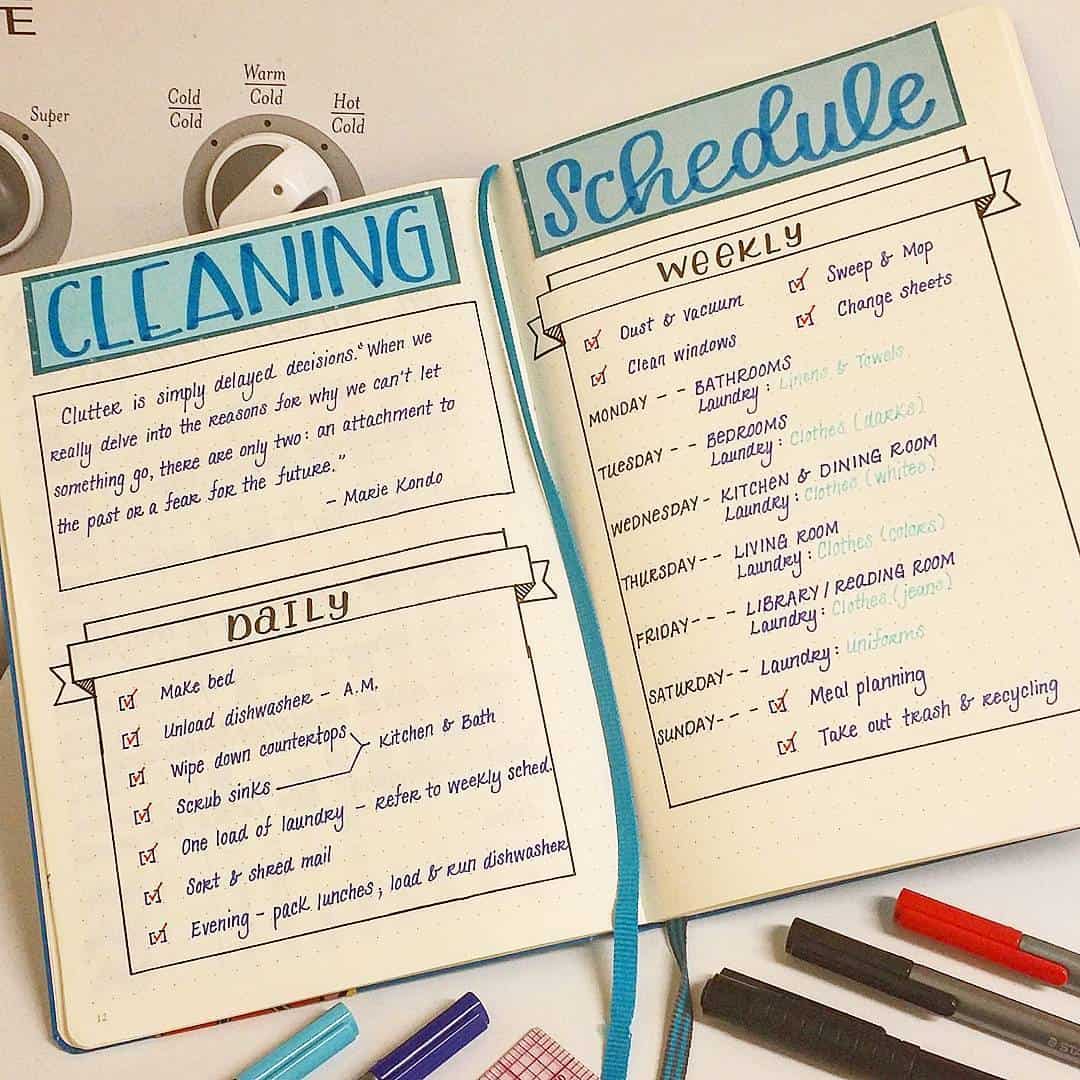 E
Super
Cold
Cold
Warm
Cold
Hot
Cold
CLEANING
Clutter is simply delayed decisions." When we
really delve into the reasons for why we can't let
something go, there are only two: an attachment to
the past or a fear for the future."
- Marie Kondo
DAILY
Make bed
Unload dishwasher - A.M.
Wipe down countertops
Kitchen & Bath
Scrub sinks
One load of laundry - refer to weekly sched.
Sort & shred mail
Evening - pack lunches, load & run dishwasher
12
Schedule
WEEKLY
Dust & vacuum
Sweep & Mop
Clean windows
Change sheets
MONDAY -- BATHROOMS
Laundry: Linens & Towels
TUESDAY -- BEDROOMS
Laundry: Clothes (darks)
WEDNESDAY - KITCHEN & DINING ROOM
Laundry: Clothes (whites)
THURSDAY -- LIVING ROOM
Laundry: Clothes (colors)
FRIDAY -- - LIBRARY / READING ROOM
Laundry: Clothes (jeans)
SATURDAY -- Laundry: Uniforms
SUNDAY --- Meal planning
Take out trash & recycling